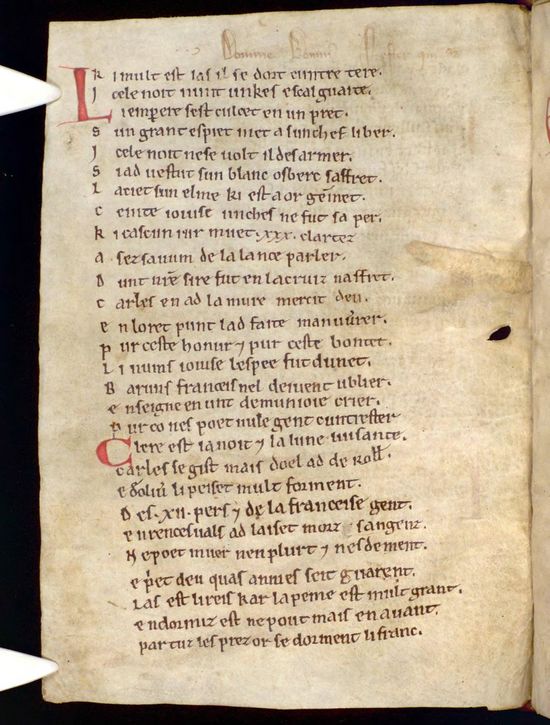 Domine
K i mult est las il se dort cuntre tere.
I cele noit nunt unkes escalguaite.
L iempere sest culcet en un pret.
s un grant espiet met a sun chef li ber.
I cele noit ne se uolt il desarmer.
s i ad uestut sun blanc osberc saffret.
L aciet sun elme ki est a or gemet.
c einte ioiuse unches ne fut sa per.
k i cascun iur muet .xxx. clartez
a sez sauum de la lance parler.
D unt nre sire fut en la cruiz naffret.
c arles en ad la mure mercit deu.
e n loret punt lad faite manuurer.
p ur ceste honur ⁊ pur ceste bontet.
L i nums ioiuse lespee fut dunet.
B aruns franceis nel deiuent ublier.
e nseigne en unt de munioie crier.
p ur co nes poet nule gent cuntrester
Clere est la noit ⁊ la lune luisante.
carles se gist mais doel ad de Roll.
e doliu li peiset mult forment.
D es .xii. pers ⁊ de la franceise gent.
e n rencesuals ad laiset morz sanglenz.
N e poet muer nen plurt ⁊ nes dement.
e p̃et deu quas anmes seit guarent.
Las est li reis kar la peine est mult grant.
e ndormiz est ne pout mais en auant.
par tuz les prez or se dorment li franc.